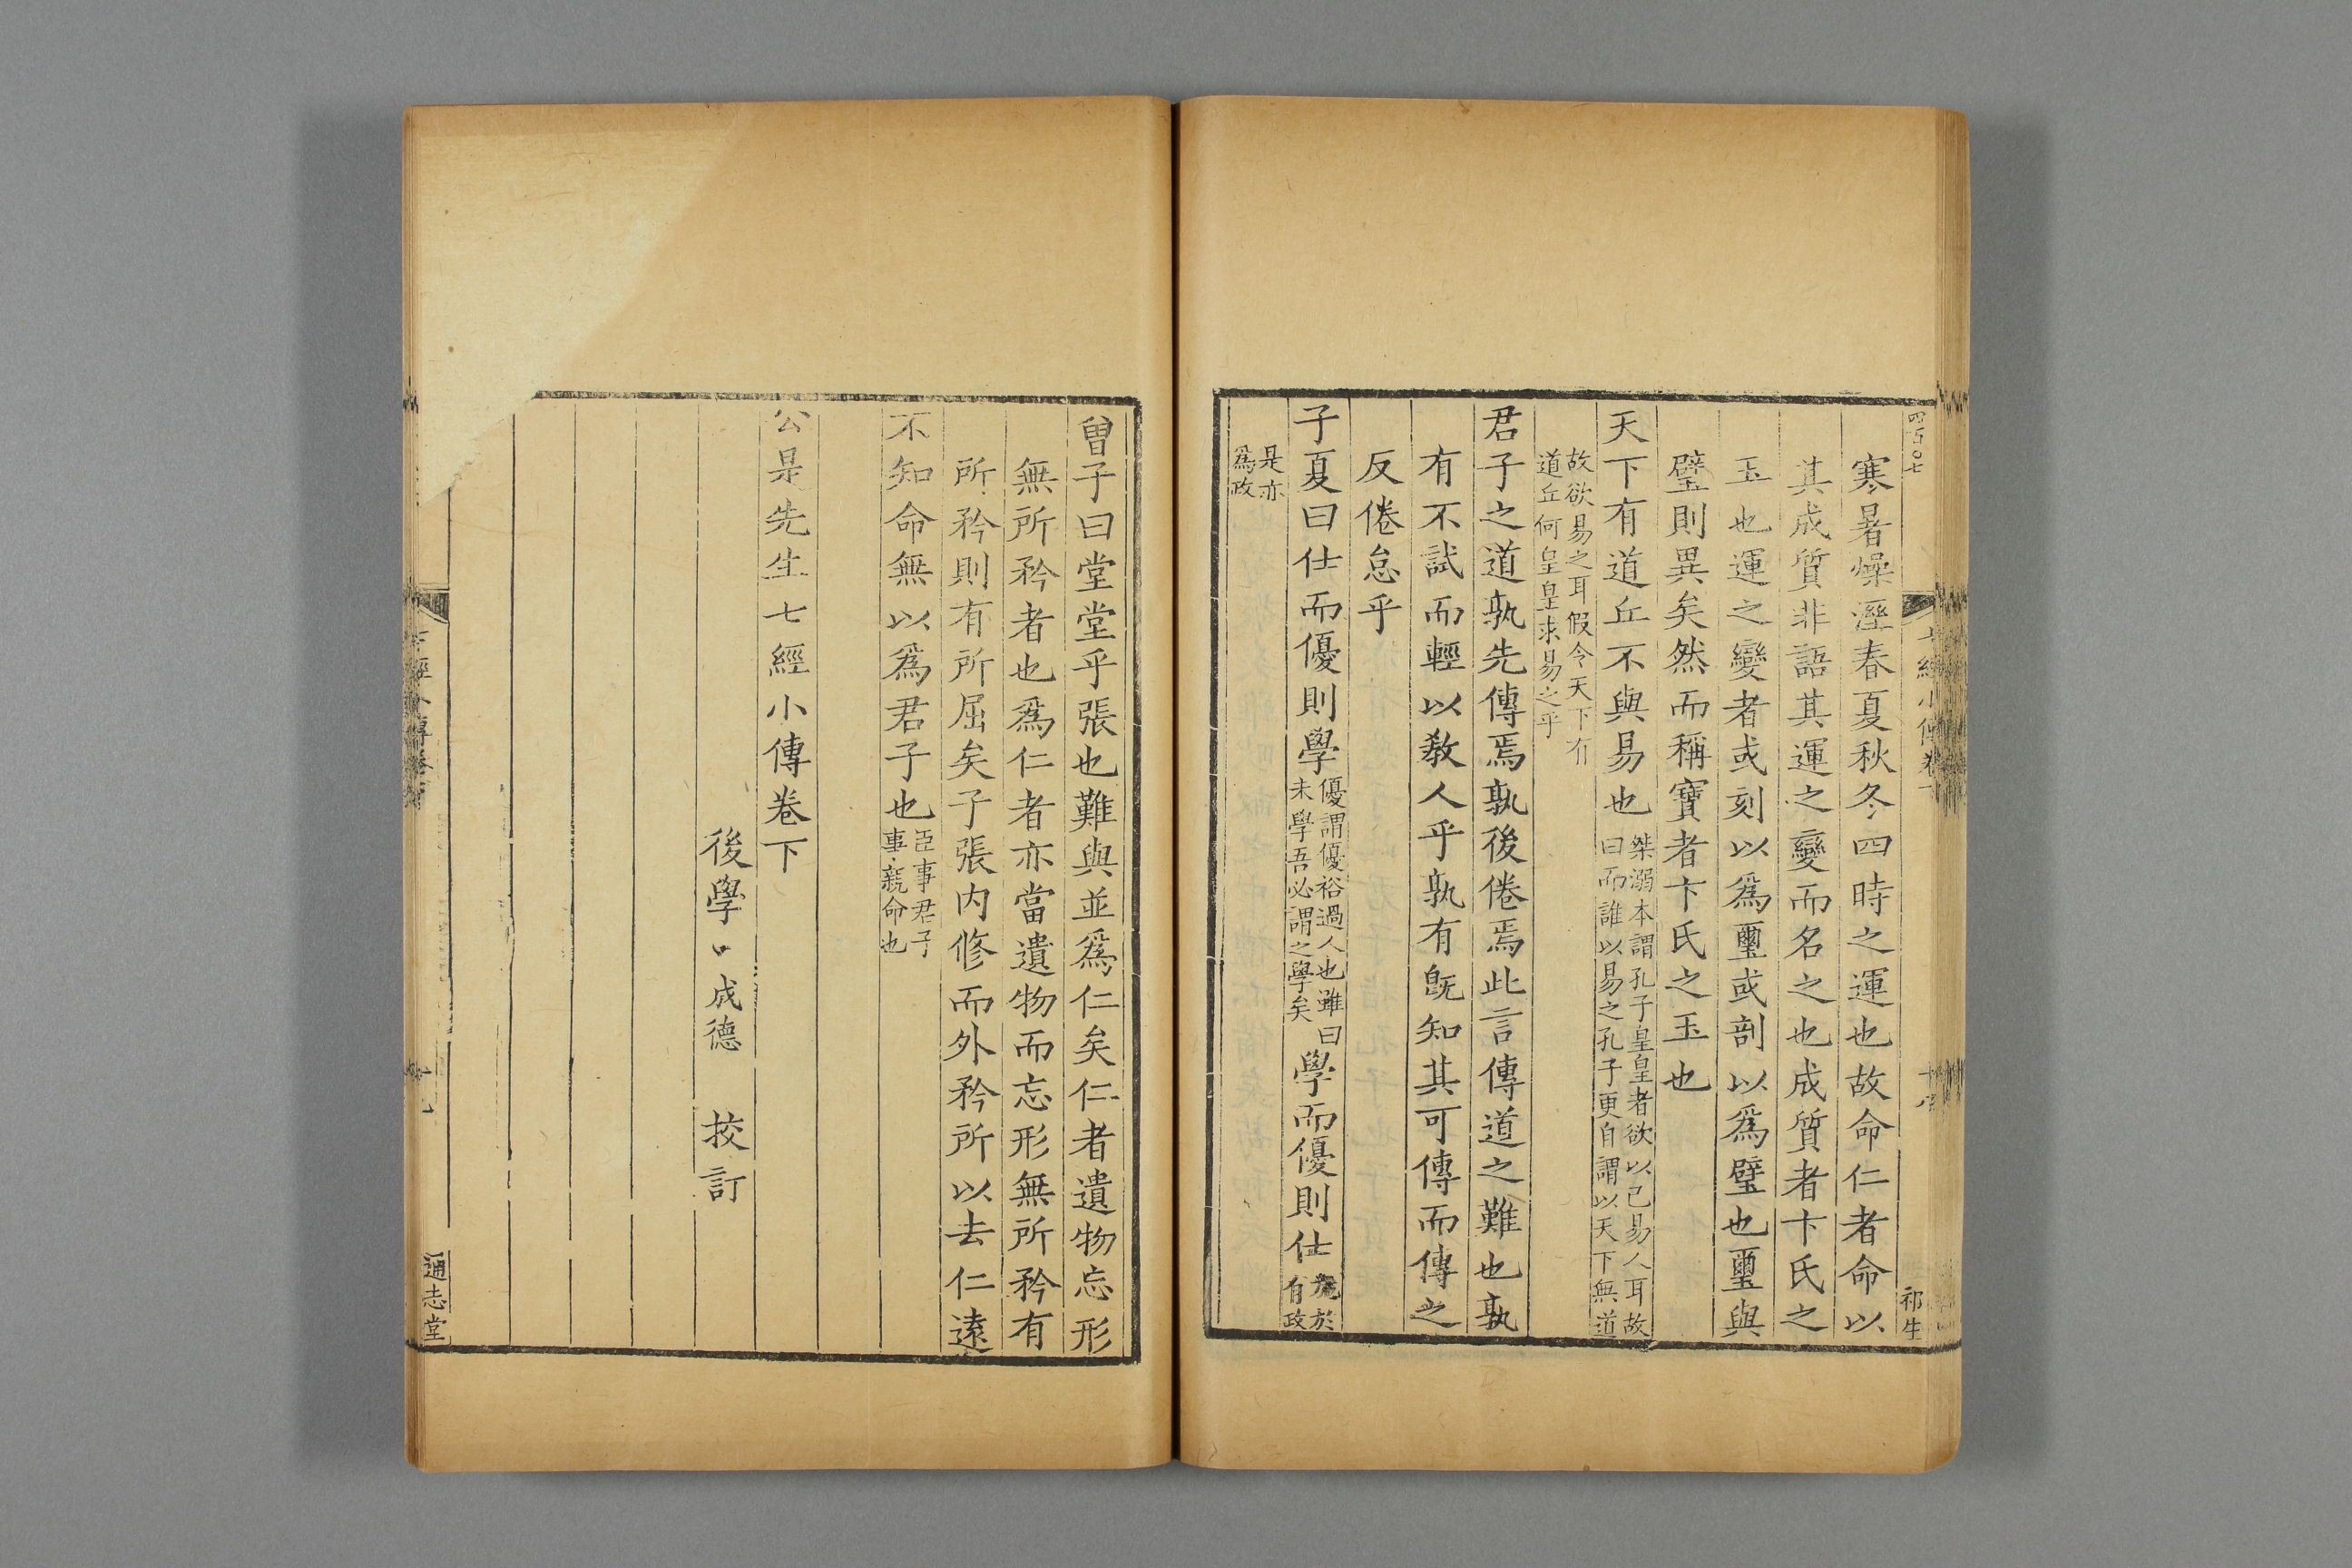 寒暑燥溼春夏秋冬四時之運也故命仁者命以
其成質非語其運之變而名之也成質者卞氏之
玉也運之變者或刻以爲璽或剖以爲璧也璽與
璧則異矣然而稱寶者卞氏之玉也
天下有道丘不與易也
桀溺本謂孔子皇皇者欲以己易人耳故
曰而誰以易之孔子更自謂以天下無道
故欲易之耳假令天下有
道丘何皇皇求易之乎
君子之道孰先傳焉孰後倦焉此言傳道之難也孰
有不試而輕以教人乎孰有旣知其可傳而傳之
反倦怠乎
子夏曰仕而優則學
優謂優裕過人也雖曰
未學吾必謂之學矣
學而優則仕
施於
有政
是亦
爲政
祁生
曾子曰堂堂乎張也難與並爲仁矣仁者遺物忘形
無所矜者也爲仁者亦當遺物而忘形無所矜有
所矜則有所屈矣子張内修而外矜所以去仁遠
不知命無以爲君子也
臣事君子
事親命也
公是先生七經小傳卷下
後學 成德 挍訂
通志堂